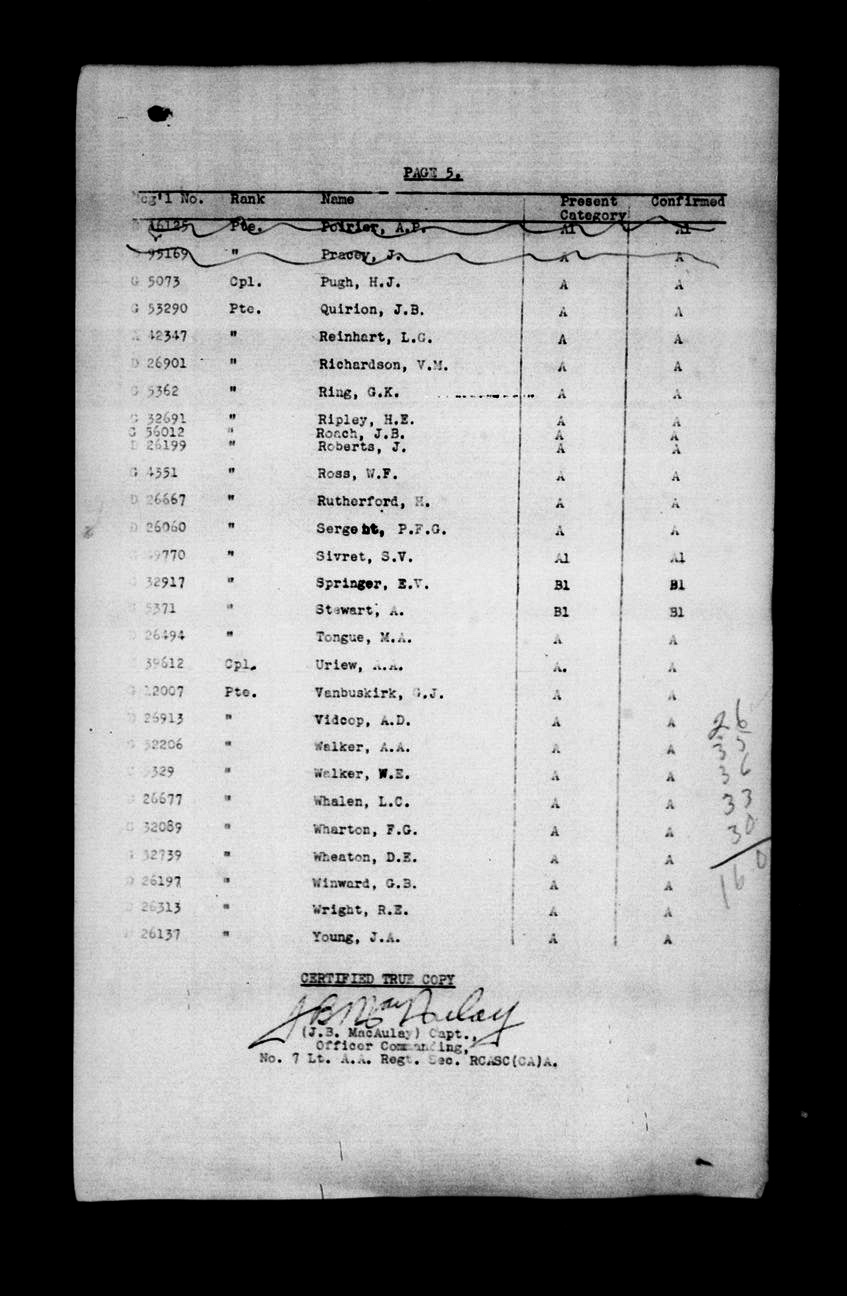 PAGE 5.
Reg'l No. Rank Name Present Category Confirmed
46125 Pte. Poirier, A.P. A1 A1
95169 " Pracey, J. A A
G 5073 Cpl. Pugh, H.J. A A
G 53290 Pte. Quirion, J.B. A A
42347 " Reinhart, L.C. A A
D 26901 " Richardson, V.M. A A
G 5362 " Ring, G.K. A A
G 32691 " Ripley, H.E. A A
G 56012 " Roach, J.B. A A
D 26199 " Roberts, J. A A
G 4551 " Ross, W.F. A A
D 26667 " Rutherford, H. A A
D 26060 " Sergent, P.F.G. A A
49770 " Sivret, S.V. A1 A1
G 32917 " Springer, E.V. B1 B1
G 5371 " Stewart, A. B1 B1
D 26494 " Tongue, M.A. A A
39612 Cpl. Uriew, A.A. A. A
G 12007 Pte. Vanbuskirk, G.J. A A
D 26913 " Vidcop, A.D. A A
G 32206 " Walker, A.A. A A
5329 " Walker, W.E. A A
26677 " Whalen, L.C. A A
G 32089 " Wharton, F.G. A A
G 32739 " Wheaton, D.E. A A
D 26197 " Winward, G.B. A A
D 26313 " Wright, R.E. A A
26137 " Young, J.A. A A
26
35
36
33
30
160
CERTIFIED TRUE COPY
J B MacAulay
(J.B. MacAulay) Capt.,
Officer Commanding,
No. 7 Lt. A.A. Regt. Sec. RCASC(CA)A.